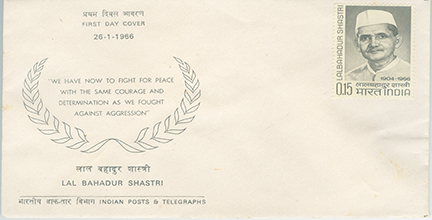 प्रथम दिवस आवरण
FIRST DAY COVER
26-1-1966
"WE HAVE NOW TO FIGHT FOR PEACE
WITH THE SAME COURAGE AND
DETERMINATION AS WE FOUGHT
AGAINST AGGRESSION"
लाल बहादुर शास्त्री
LAL BAHADUR SHASTRI
भारतीय डाक-तार विभाग INDIAN POSTS & TELEGRAPHS
LALBAHADUR SHASTRI
1904-1966
लालबहादुर शास्त्री
0.15 भारत INDIA